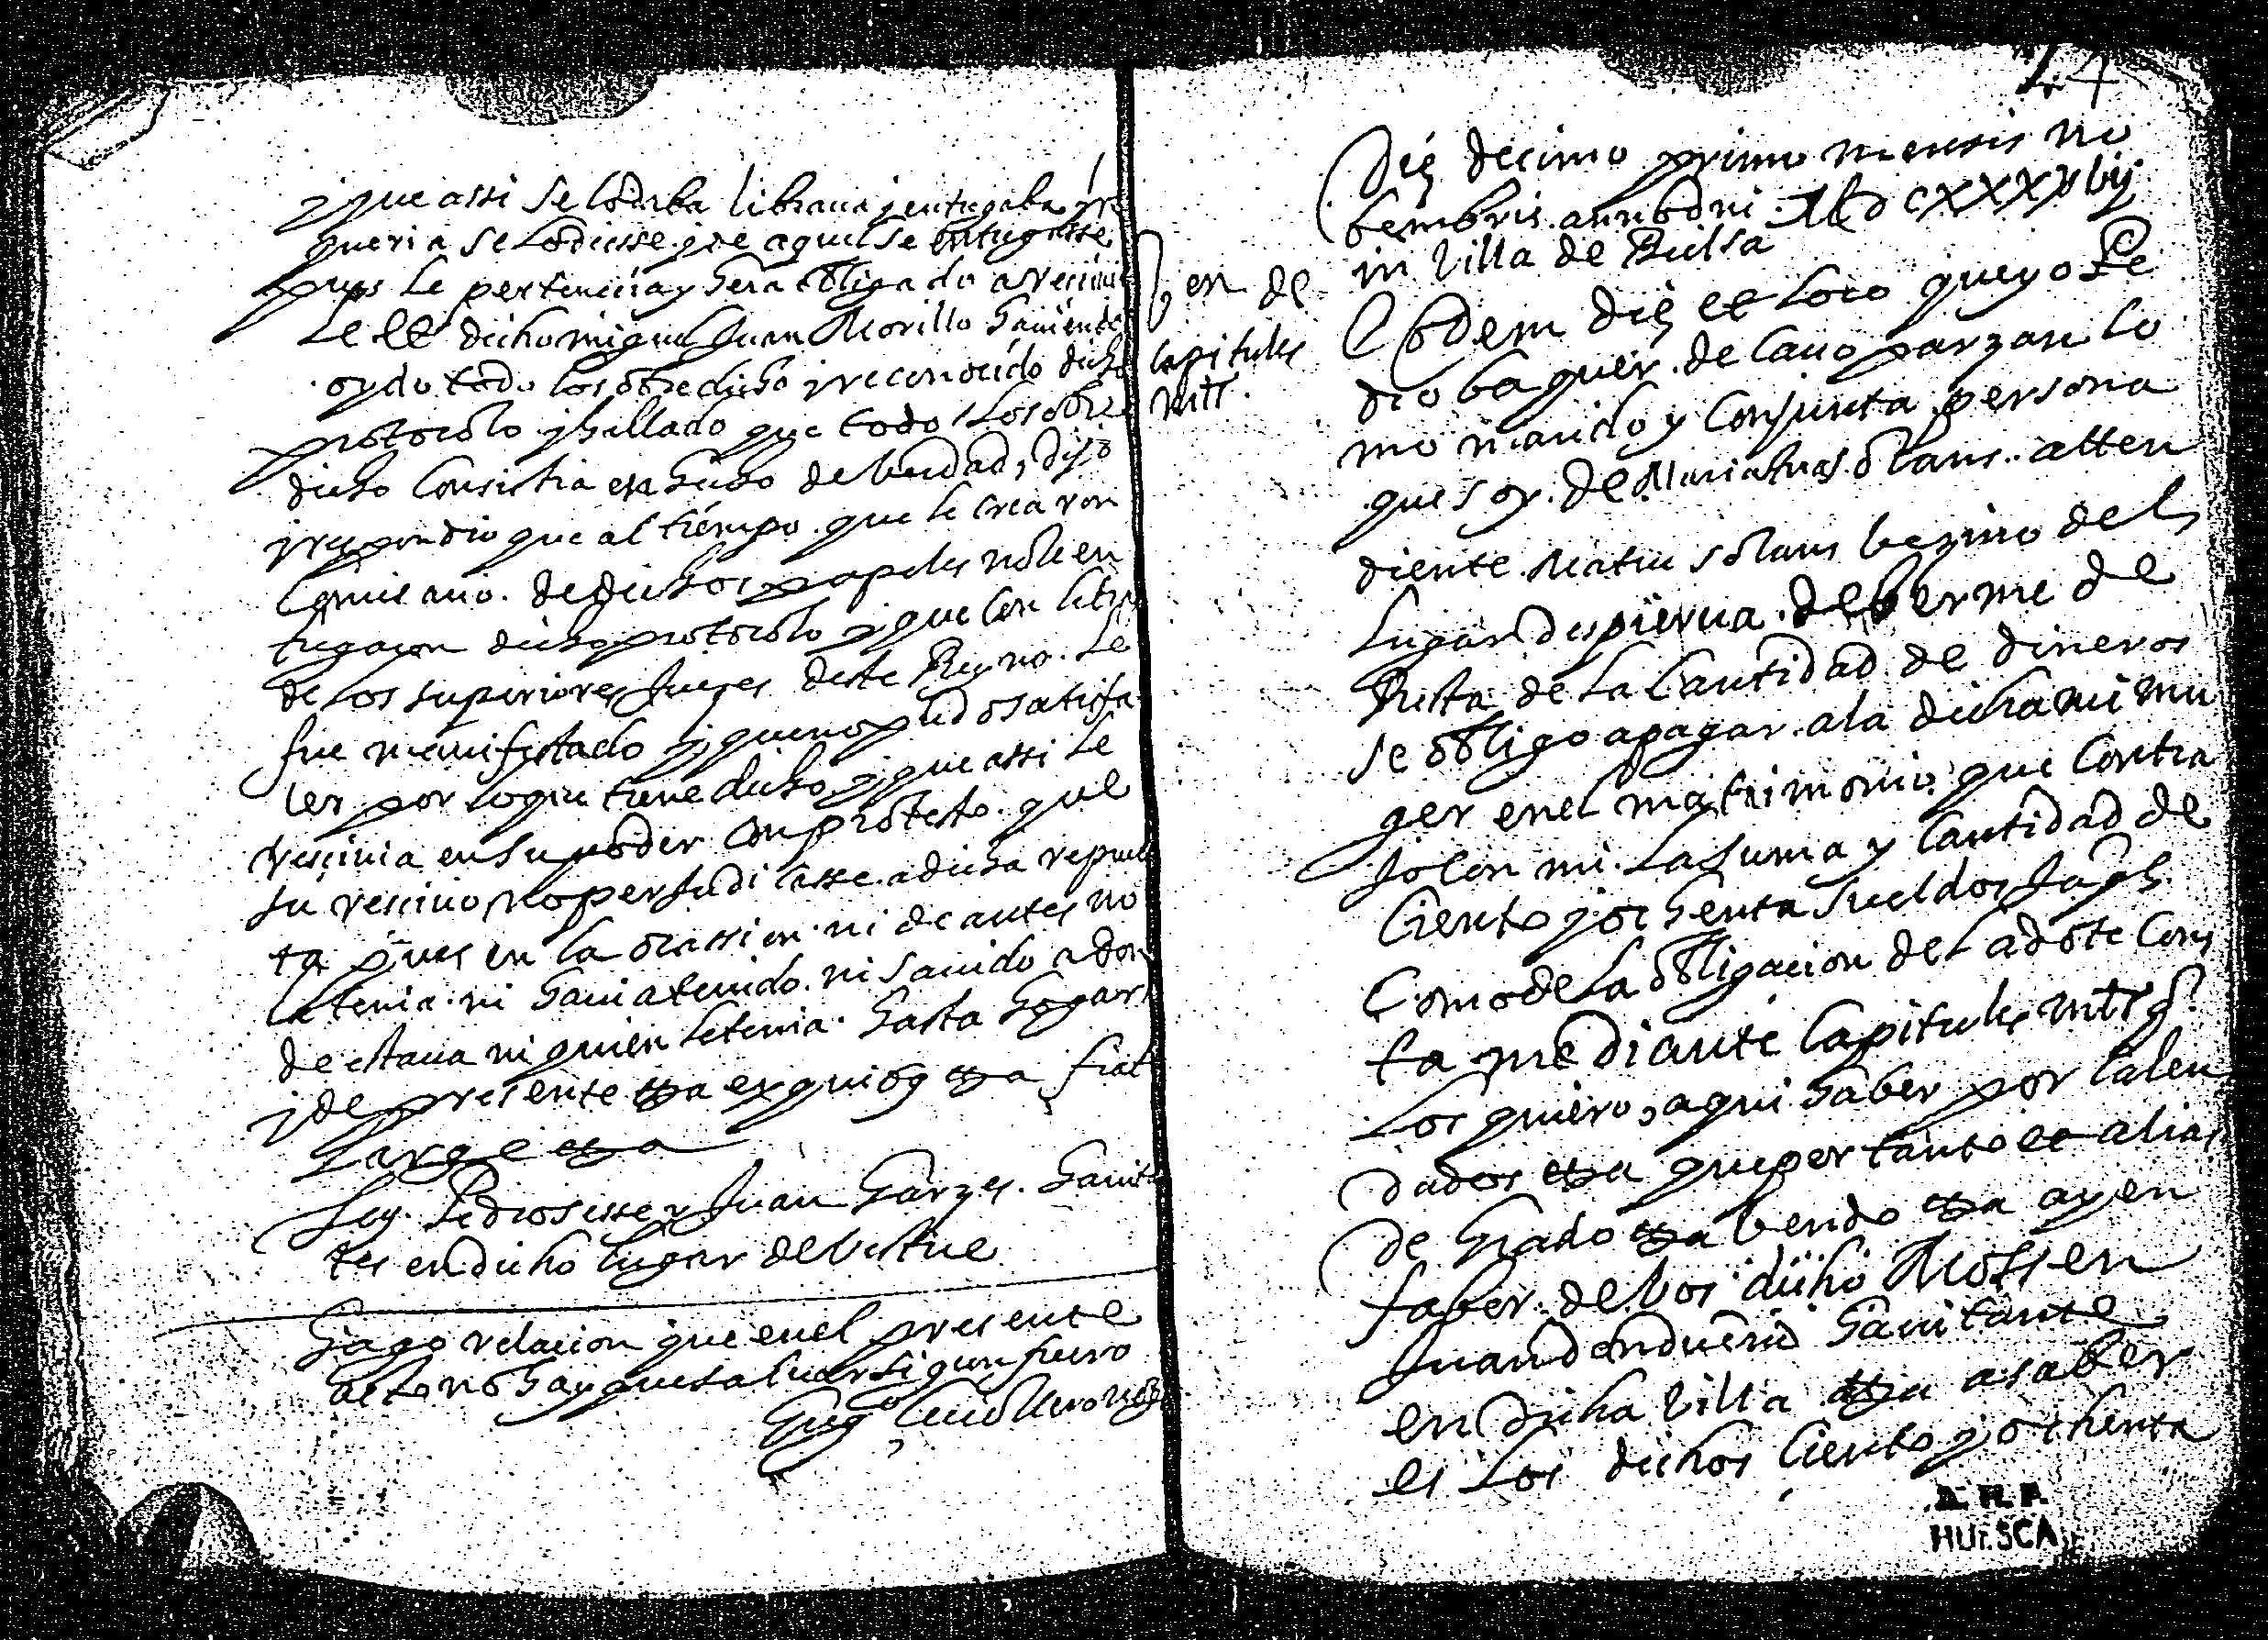 y que assi se lo daba libraua y entregaba y re
queria se lo diesse y de aquel se entregasse
pues le pertenecia y hera obligado a recivir
le el dicho miguel Juan Morillo haviendo
oydo todo lo sobredicho y reconocido dicho
protocolo y hallado que todo lo sobre
dicho consistia en hecho de verdad, dijo
y respondio que al tiempo que le crearon
comissario de dichos papeles no le en
tregaron dicho protocolo y que con letras
de los superiores Jueces deste Reyno le
fue manifestado y que no pudo satisfa
cer por lo que tiene dicho y que assi le
recivia en su poder con protesto que
su recivo no perjudicasse a dicha repues
ta pues en la ocassion ni de antes no
la tenia ni havia tenido ni savido a don
de estaua ni quien le tenia hasta hogaro
y de presente etta ex quibus etta fiat
large etta
Tes. Pedro sesse y Juan Garzes havitan
tes en dicho lugar de bestue
Hago relacion que en el presente
acto no hay que saluar sigun fuero
14
Die decimo primo mensis no
bembris anno dni MDCXXXVIIj
in villa de Bielsa
Ven de
capitules
mtls.
Eodem die et loco que yo Pe
dro baguer de lano parzan co
mo marido y conjunta persona
que soy de Maria bras solans atten
diente Matiu solans bezino del
lugar despierua deberme de
Resta de la cantidad de dineros
se obligo a pagar a la dicha mi mu
ger en el matrimonio que contra
jo con mi la suma y cantidad de
ciento y ochenta sueldos Jaqs
como de la obligacion de la dote cons
ta mediante capitules mtls q
los quiero, aqui haber por calen
dados etta que por tanto et alias
de grado etta bendo etta a y en
faber de bos dicho Mossen
Juan denduerid havitante
en dicha villa etta a saber
es los dichos ciento y ochenta
A.H.P.
HUESCA